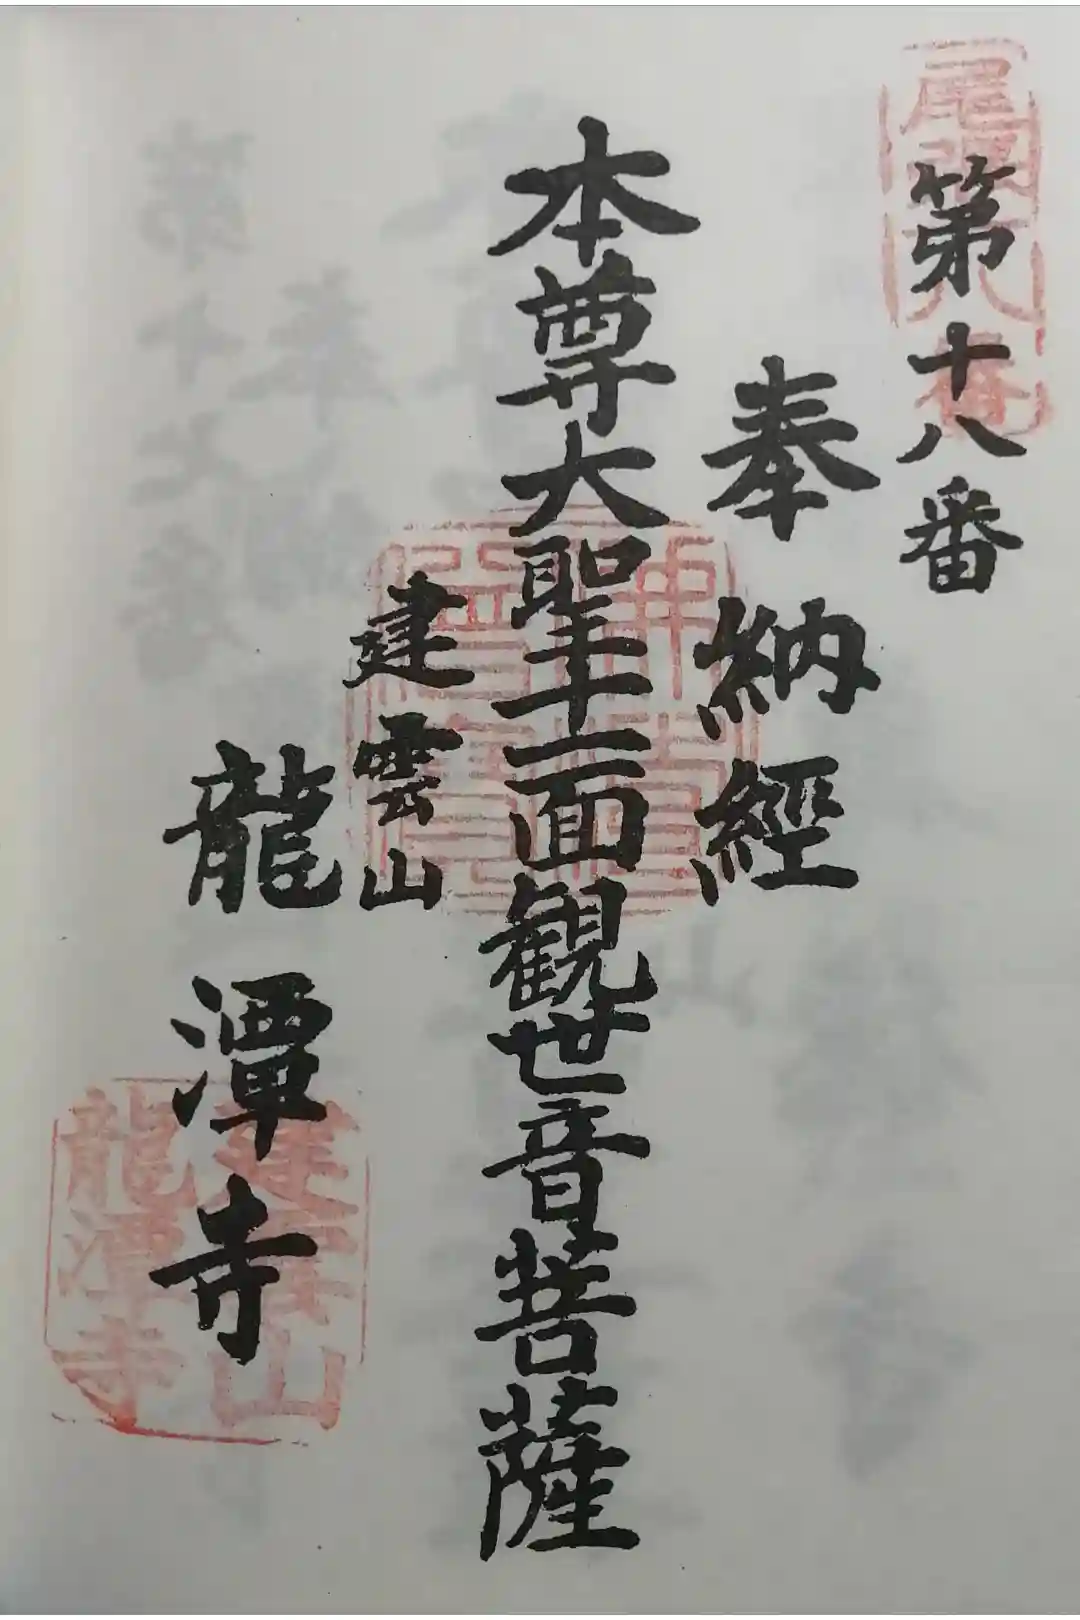 第十八番
奉納経
本尊大聖十一面観世音菩薩
建雲山
龍潭寺
建雲山
龍潭寺